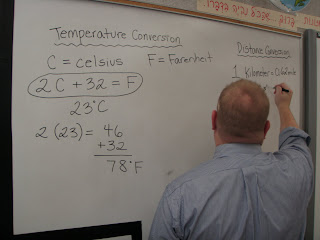 Temperature Conversion
C = celsius F = Farenheit
2C + 32 = F
23°C
2 (23) = 46
+32
78°F
Distance Conversion
1 Kilometer =